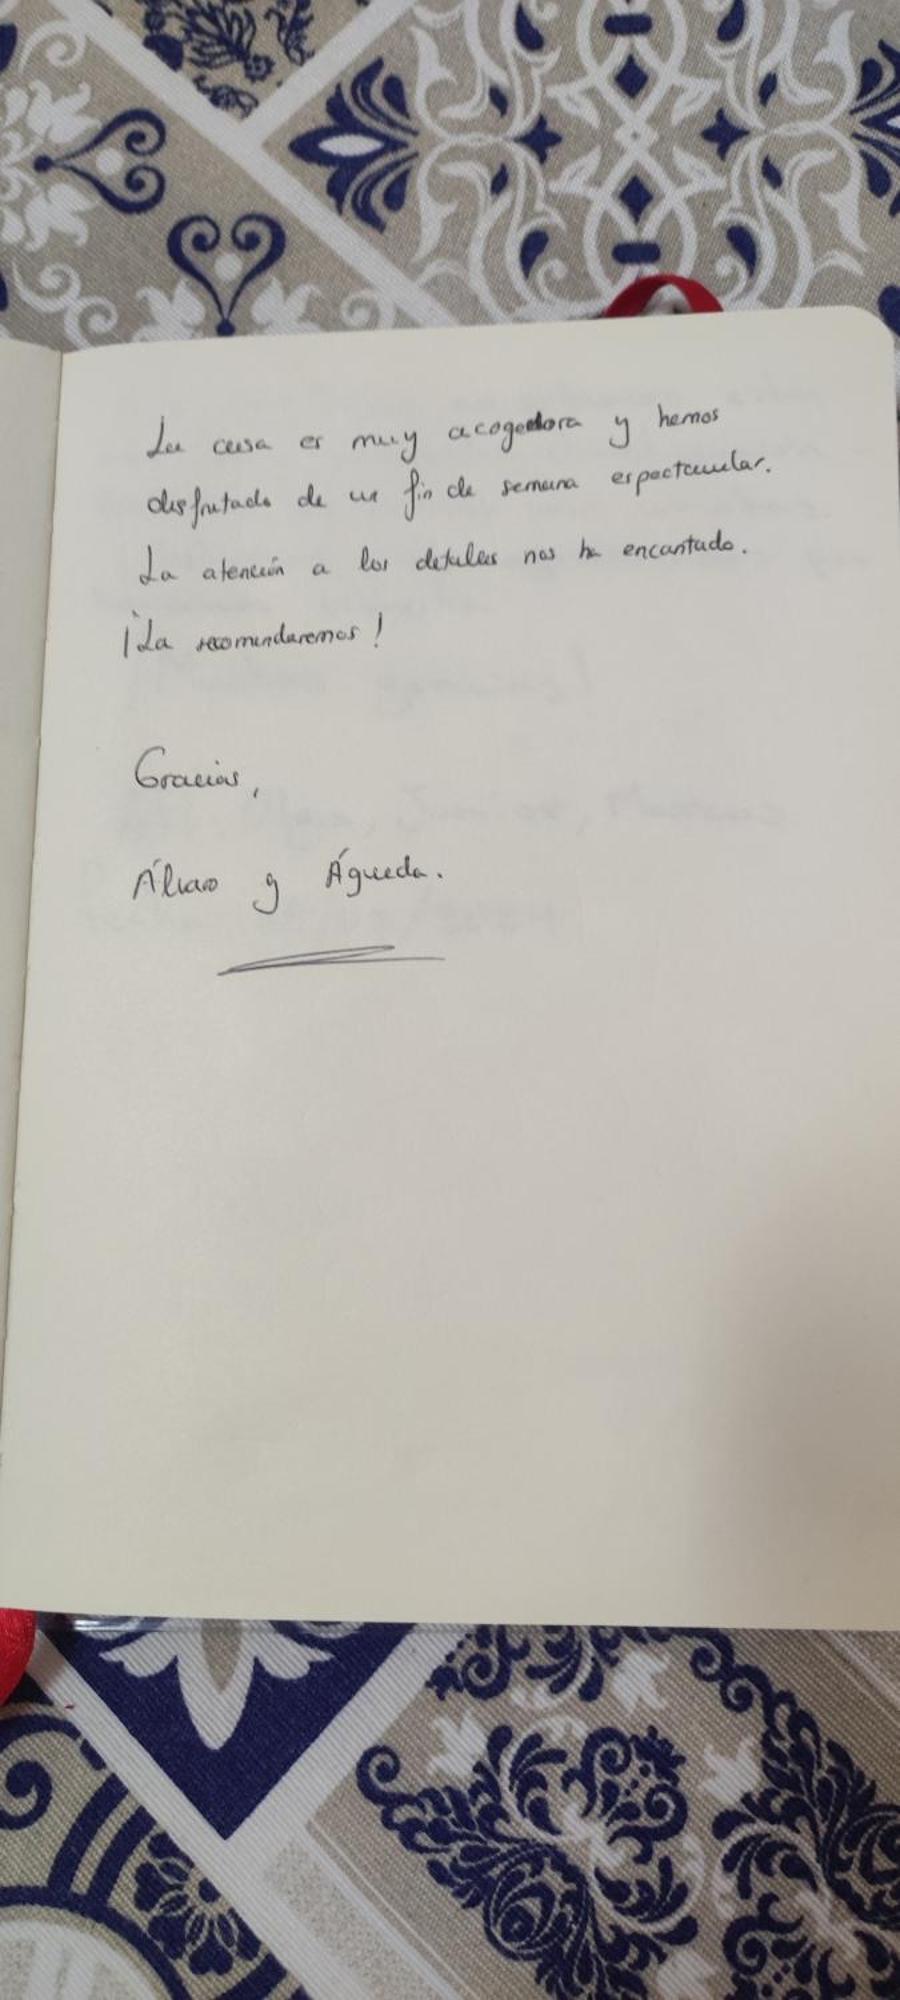 La casa es muy acogedora y hemos
disfrutado de un fin de semana espectacular.
La atención a los detalles nos ha encantado.
¡La recomendaremos!
Gracias,
Álvaro y Águeda.